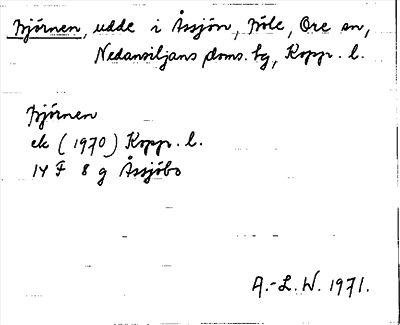 Björnen, udde i Åssjön, Ore sn,
Nedansiljans doms. bg, Kopp. l.
Björnen
ek (1970) Kopp. l.
14 F 8 g Åssjöbo
A.-L. W. 1971.